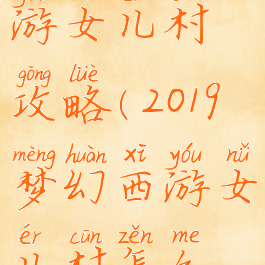 游女儿村
gōng lüè
攻略(2019
mèng huàn xī yóu nǚ
梦幻西游女
ér cūn zěn me
儿村怎么